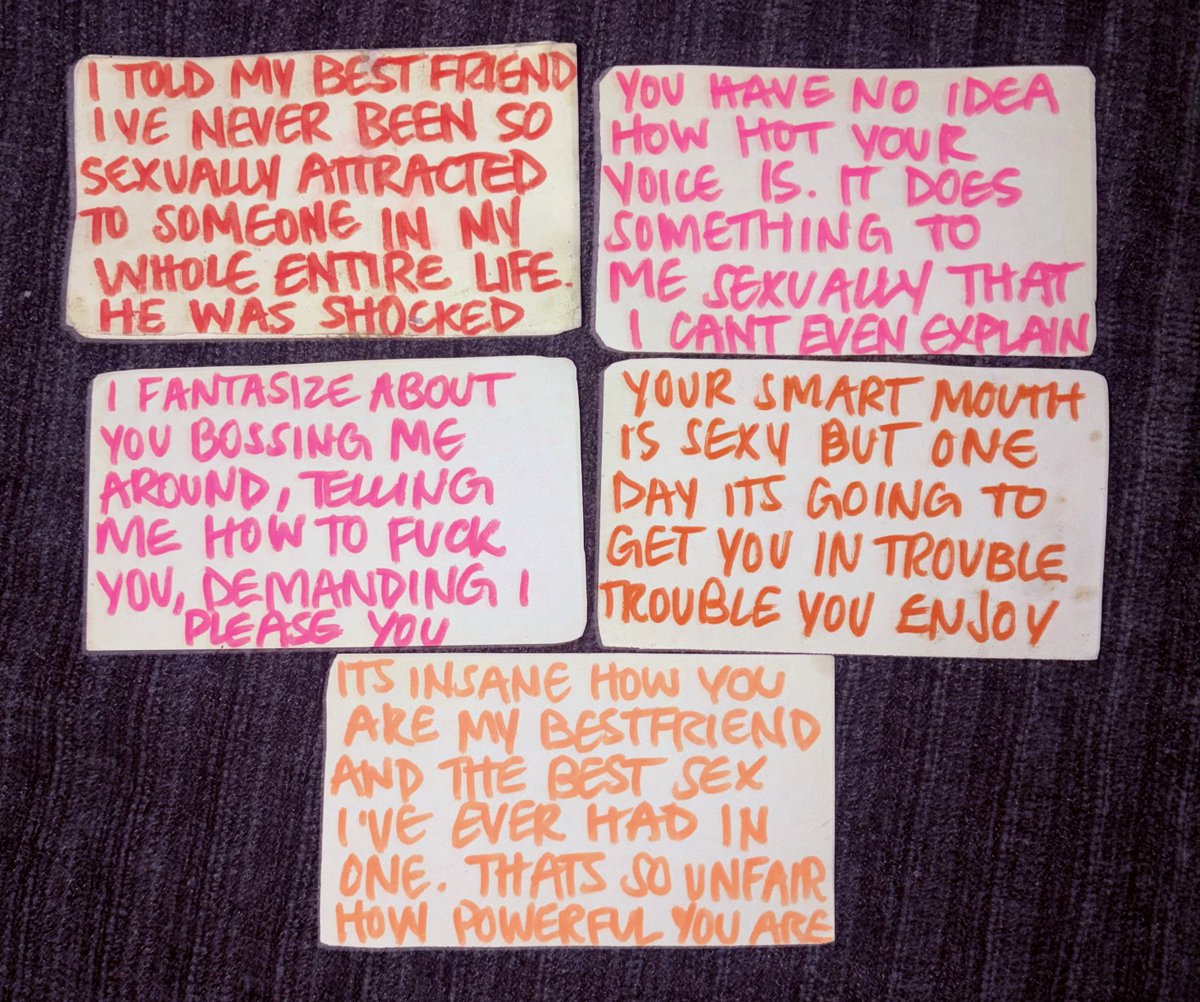 I TOLD MY BEST FRIEND
IVE NEVER BEEN SO
SEXUALLY ATTRACTED
TO SOMEONE IN MY
WHOLE ENTIRE LIFE.
HE WAS SHOCKED
YOU HAVE NO IDEA
HOW HOT YOUR
VOICE IS. IT DOES
SOMETHING TO
ME SEXUALLY THAT
I CANT EVEN EXPLAIN
I FANTASIZE ABOUT
YOU BOSSING ME
AROUND, TELLING
ME HOW TO FUCK
YOU, DEMANDING I
PLEASE YOU
YOUR SMART MOUTH
IS SEXY BUT ONE
DAY ITS GOING TO
GET YOU IN TROUBLE
TROUBLE YOU ENJOY
ITS INSANE HOW YOU
ARE MY BESTFRIEND
AND THE BEST SEX
I'VE EVER HAD IN
ONE. THATS SO UNFAIR
HOW POWERFUL YOU ARE